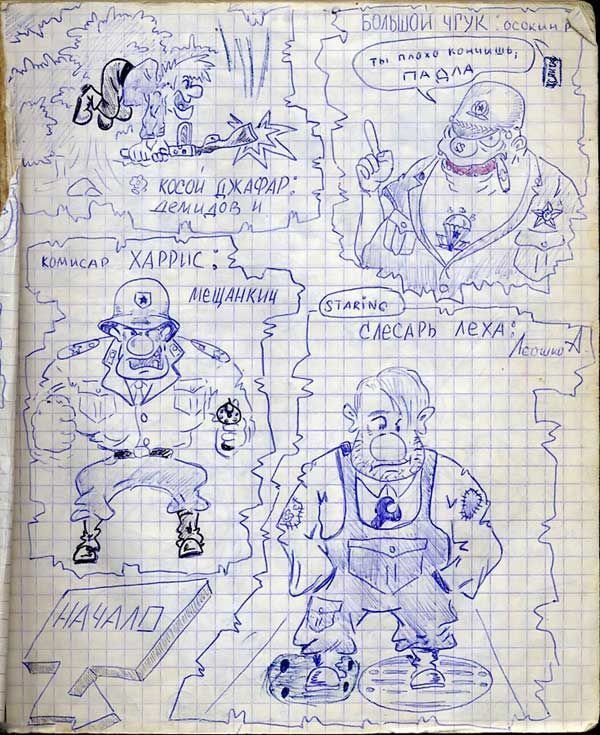 БОЛЬШОЙ ЧГУК: ОСОКИН Р
ТЫ ПЛОХО КОНЧИШЬ,
ПАДЛА
КОСОЙ ДЖАФАР:
ДЕМИДОВ И
КОМИСАР ХАРРИС:
МЕЩАНКИН
STARING
СЛЕСАРЬ ЛЕХА:
Леошко А
НАЧАЛО